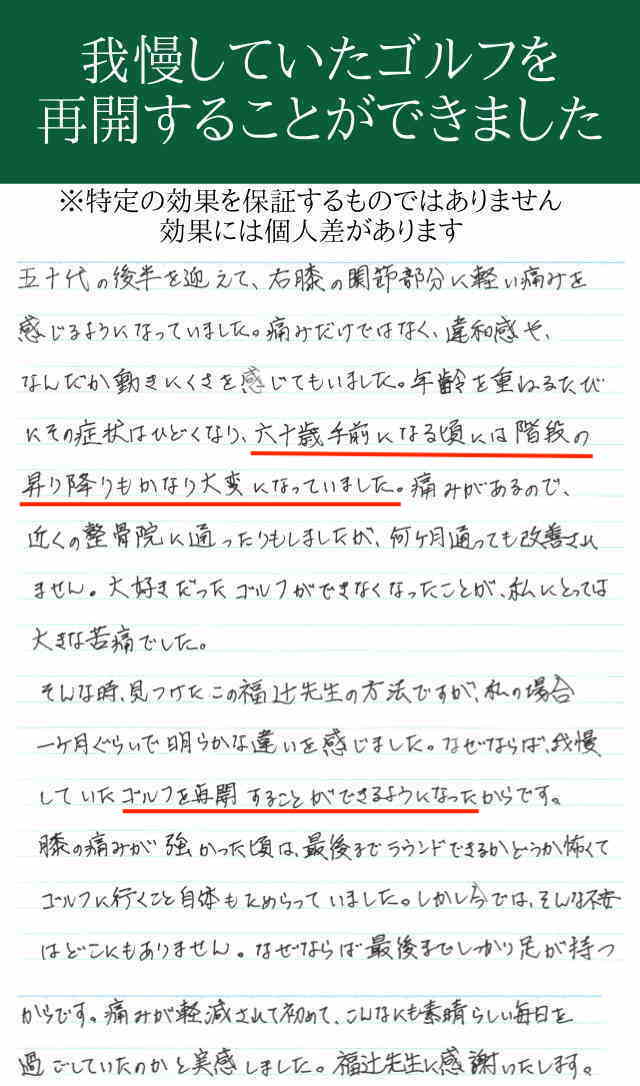 我慢していたゴルフを
再開することができました
※特定の効果を保証するものではありません
効果には個人差があります
五十代の後半を迎えて、右膝の関節部分に軽い痛みを
感じるようになっていました。痛みだけではなく、違和感や、
なんだか動きにくさを感じてもいました。年齢を重ねるたび
にその症状はひどくなり、六十歳手前になる頃には階段の
昇り降りもかなり大変になっていました。痛みがあるので、
近くの整骨院に通ったりもしましたが、何ヶ月通っても改善され
ません。大好きだったゴルフができなくなったことが、私にとっては
大きな苦痛でした。
そんな時、見つけたこの福辻先生の方法ですが、私の場合
一ヶ月ぐらいで明らかな違いを感じました。なぜならば、我慢
していたゴルフを再開することができるようになったからです。
膝の痛みが強かった頃は、最後までラウンドできるかどうか怖くて
ゴルフに行くこと自体もためらっていました。しかし今では、そんな不安
はどこにもありません。なぜならば最後までしっかり足が持つ
からです。痛みが軽減されて初めて、こんなにも素晴らしい毎日を
過ごしていたのかと実感しました。福辻先生に感謝いたします。